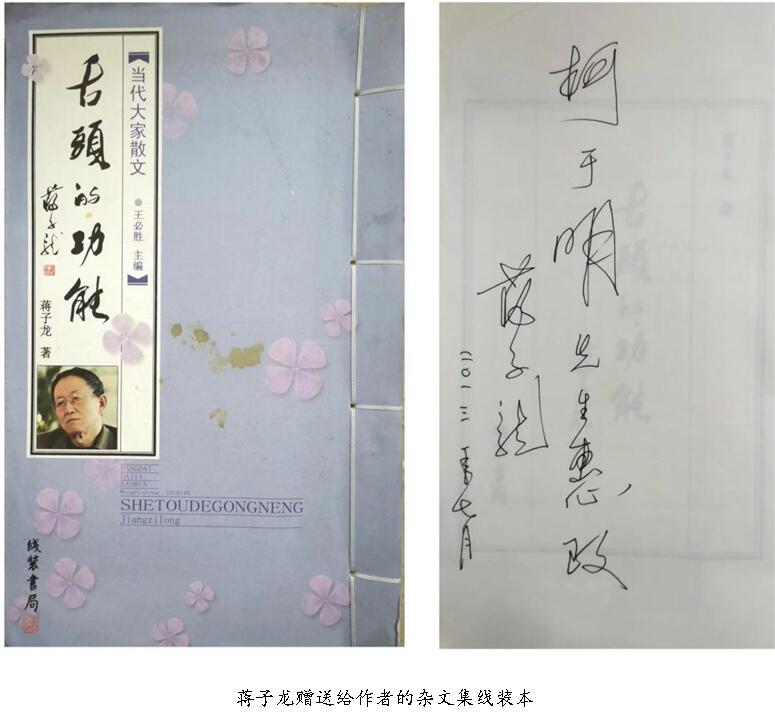 【当代大家散文 ●王必胜 主编】
舌頭的功能
蒋子龙
蒋子龙 著
DANGDAI
DAJIA
SANWEN
Wangbisheng ZHUBIAN
SHETOUDEGONGNENG
Jiangzilong
线装書局
柯于明先生惠政
蒋子龙
二〇一三年七月
蒋子龙赠送给作者的杂文集线装本